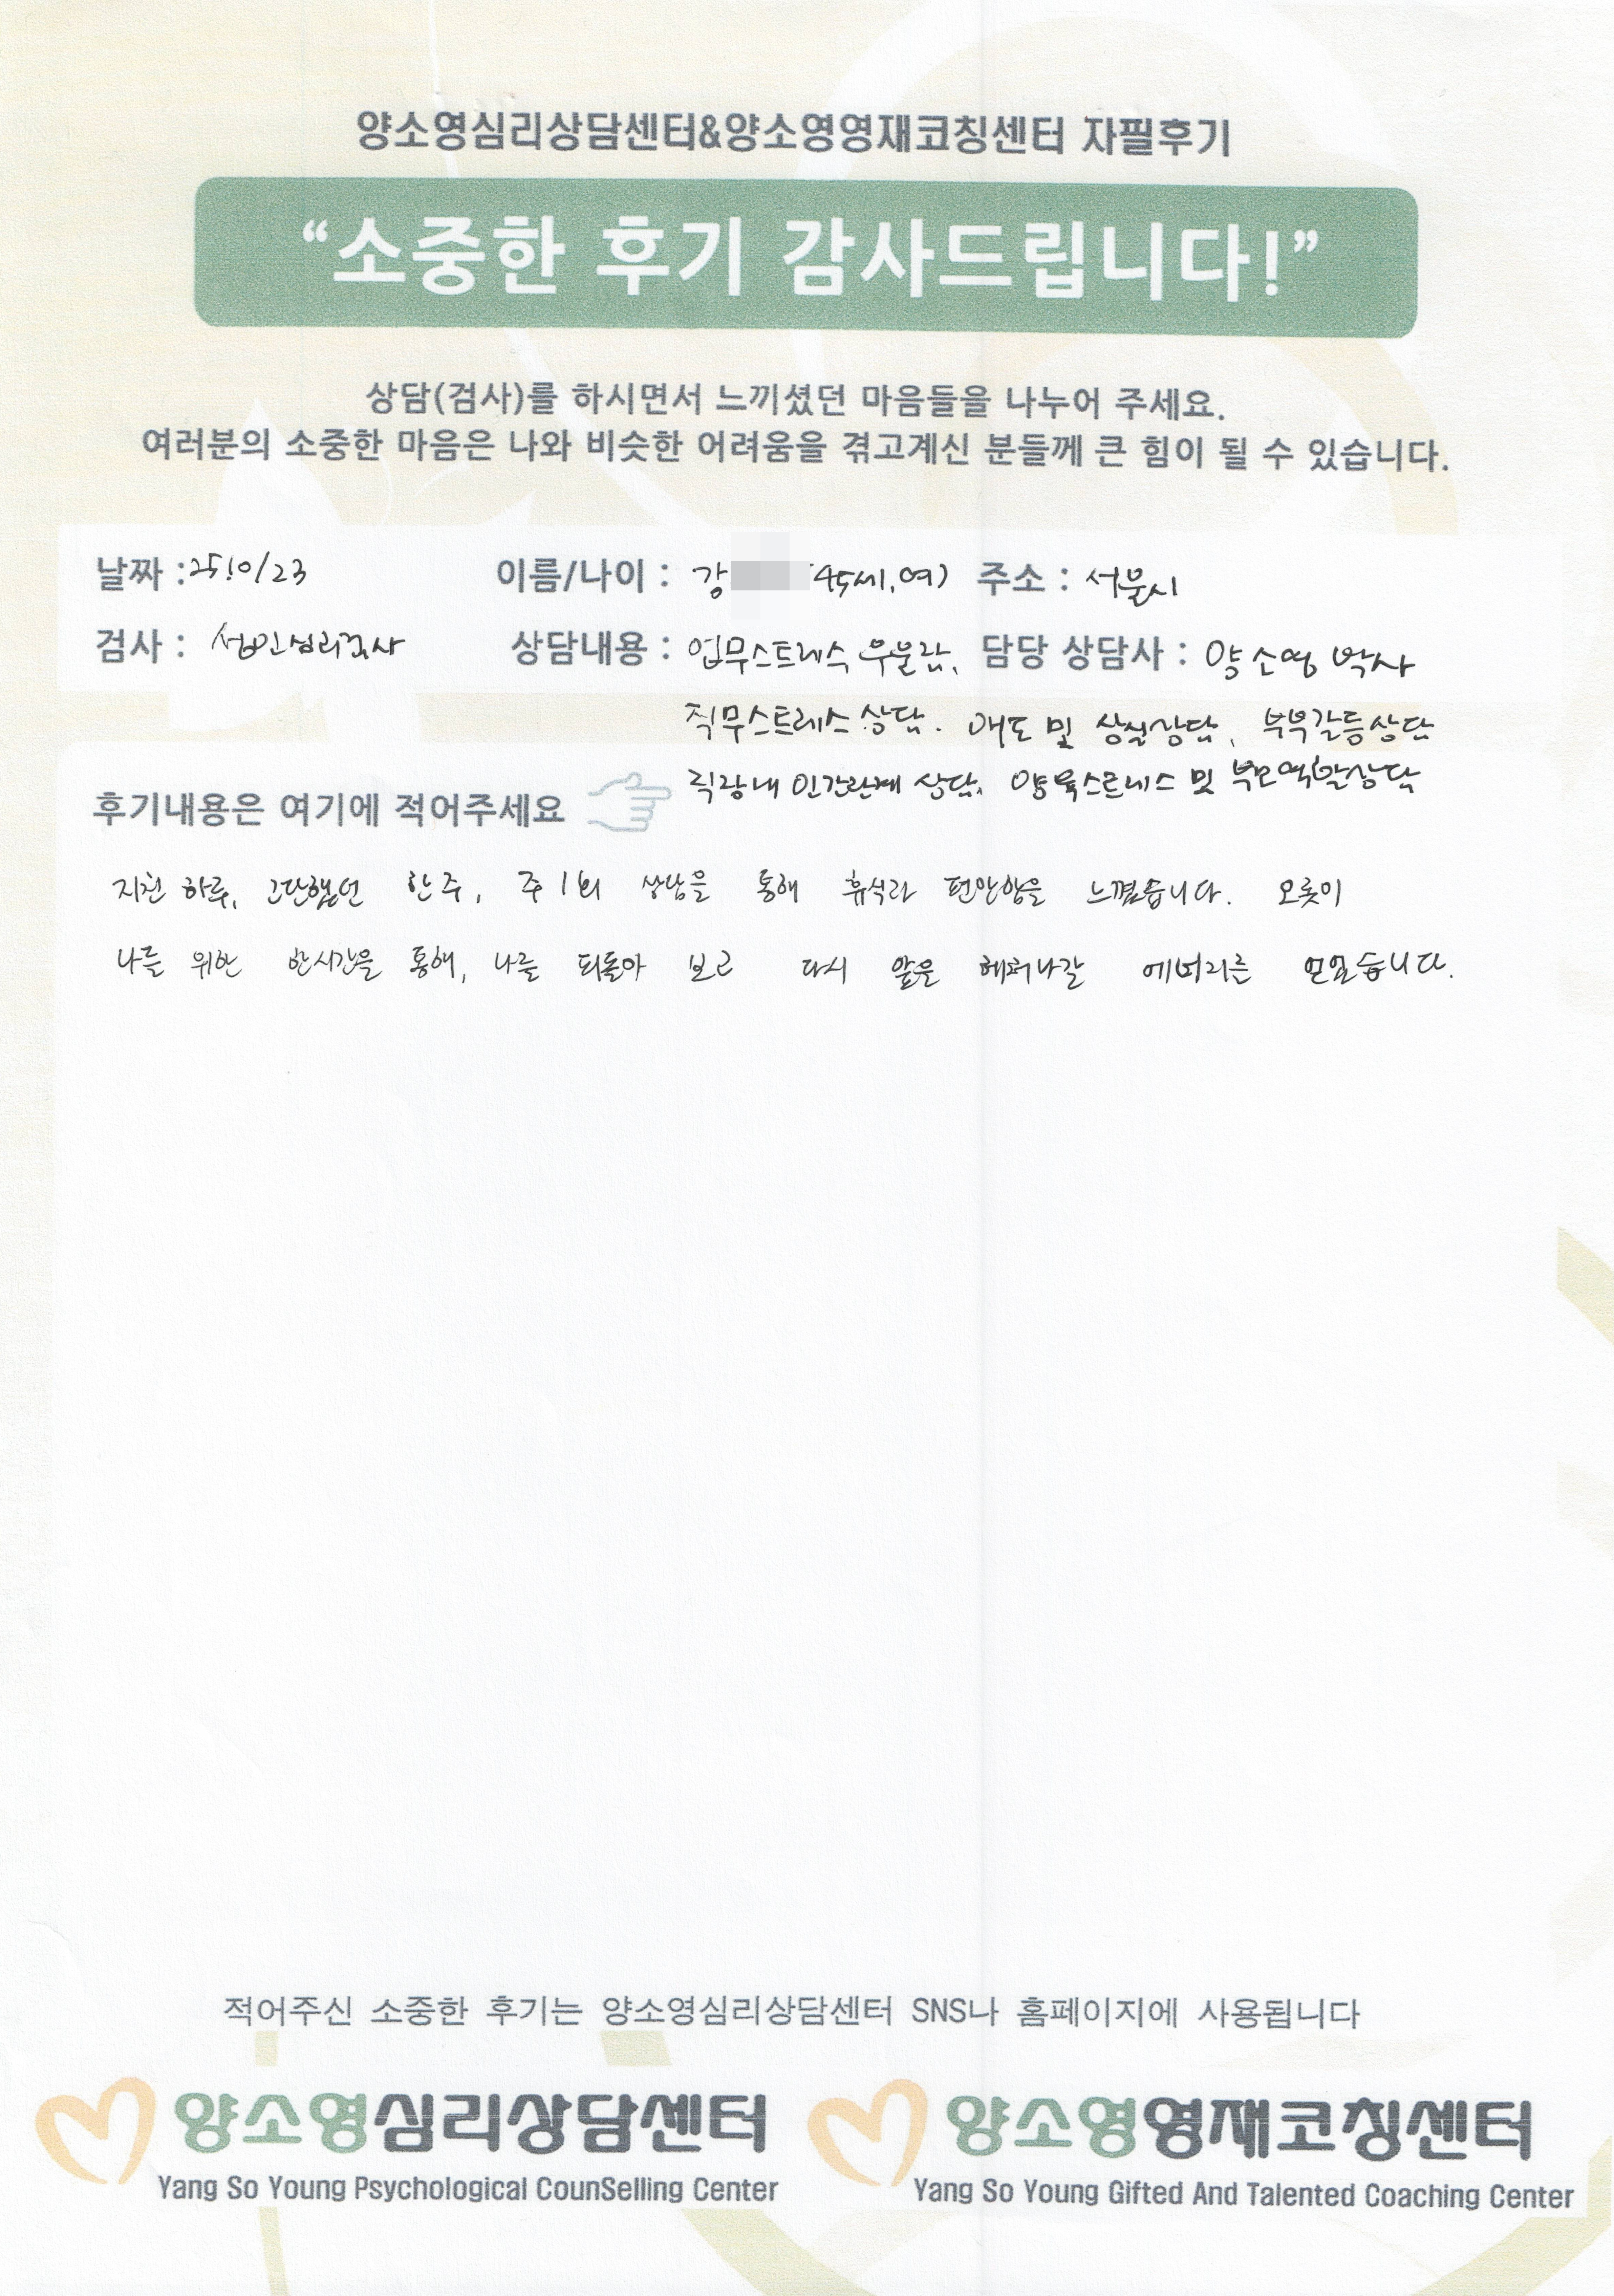 양소영심리상담센터&양소영영재코칭센터 자필후기
“소중한 후기 감사드립니다!”
상담(검사)를 하시면서 느끼셨던 마음들을 나누어 주세요.
여러분의 소중한 마음은 나와 비슷한 어려움을 겪고계신 분들께 큰 힘이 될 수 있습니다.
날짜 : 25.10/23 이름/나이 : 강 (45세, 여) 주소 : 서울시
검사 : 성인심리검사 상담내용 : 업무스트레스 우울감, 담당 상담사 : 양소영 박사
직무스트레스 상담. 애도 및 상실상담, 부부갈등상담
직장내 인간관계 상담, 양육스트레스 및 부모역할상담
후기내용은 여기에 적어주세요
지친 하루, 고단했던 한주, 주 1회 상담을 통해 휴식과 편안함을 느꼈습니다. 오롯이
나를 위한 한시간을 통해, 나를 되돌아 보고 다시 앞을 헤쳐나갈 에너지를 얻었습니다.
적어주신 소중한 후기는 양소영심리상담센터 SNS나 홈페이지에 사용됩니다
양소영심리상담센터 양소영영재코칭센터
Yang So Young Psychological CounSelling Center Yang So Young Gifted And Talented Coaching Center